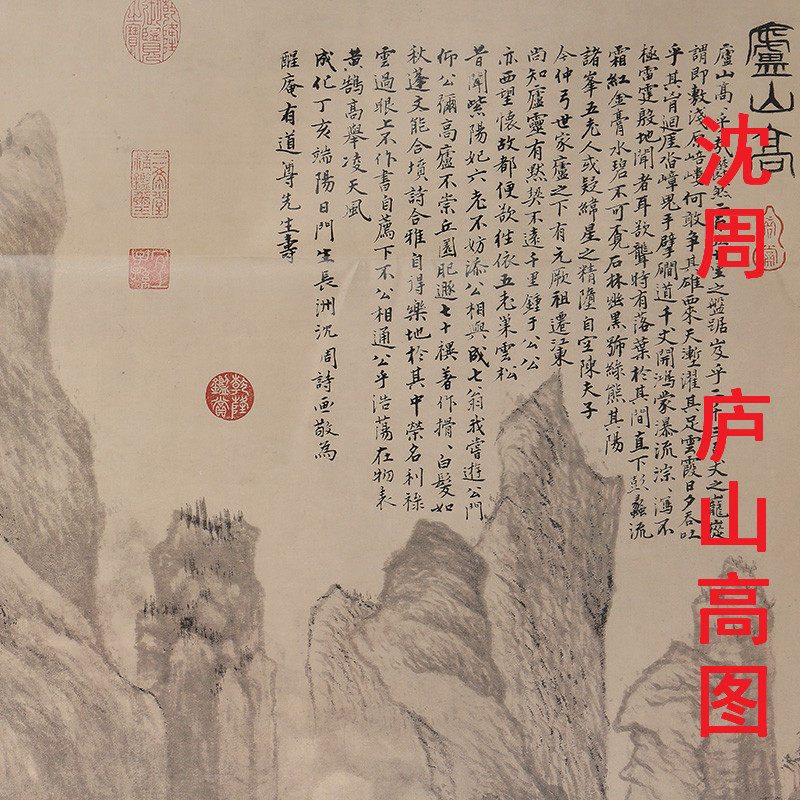 廬山高
廬山高高乎哉鬱然二百五十里之盤踞岌乎二千三百丈之巃嵸
謂即敷淺原培嶁何敢爭其雄西來天塹濯其足雲霞日夕吞吐
乎其胷迴崖沓嶂鬼手擘磵道千丈開鴻蒙瀑流淙〻瀉不
極雷霆殷地聞者耳欲聾時有落葉於其間直下彭蠡流
霜紅金膏水碧不可覓石林幽黑號綠熊其陽
諸峯五老人或疑緯星之精墮自空陳夫子
今仲弓世家廬之下有元厥祖遷江東
尚知廬靈有默契不遠千里鍾于公公
亦西望懷故都便欲往依五老巢雲松
昔聞紫陽妃六老不妨添公相與成七翁我嘗遊公門
仰公彌高廬不崇丘園肥遯七十祺著作揹〻白髮如
秋蓬文能合墳詩合雅自得樂地於其中榮名利祿
雲過眼上不作書自薦下不公相通公乎浩蕩在物表
黄鵠高舉凌天風
成化丁亥端陽日門生長洲沈周詩画敬為
醒庵有道尊先生壽
乾隆御覽之寶
三希堂精鑑璽
宜子孫
乾隆鑑賞
沈周 庐山高图